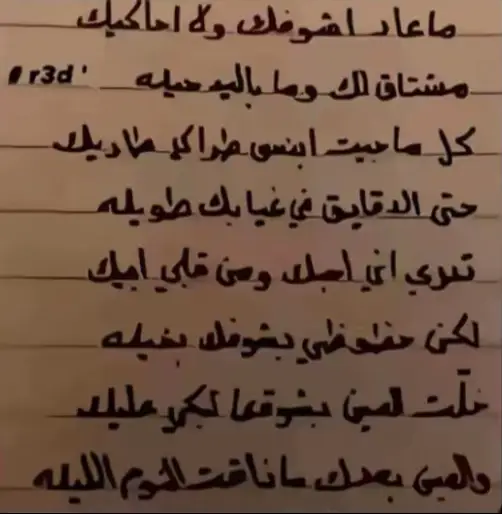 ماعاد اشوفك ولا احاكيك
مشتاق لك وما باليد حيله r3d'
كل ماجيت ابنسى طرالي طاريك
حتى الدقايق في غيابك طويله
تدري اني احبك ومن قلبي ابيك
لكن حظوظي بشوفك بخيله
خلّت العين بشوقها تبكي عليك
والعين بعدك ماذاقت النوم الليله